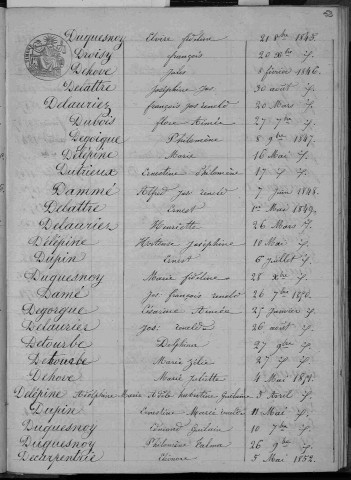 Duquesnoy Elvire fidéline 21 8bre 1845.
Droisy françois 20 Xbre id.
Dehove jules 8 février 1846.
Delattre joséphine jos. 30 août id.
Delaurier françois jos 20 Mars id.
Dubois flore Aimée 27 7bre id.
Degorgue Philomène 8 9bre 1847.
Délépine Marie 16 Mai id.
Dutrieux Ernestine Philomène 17 id. id.
Dammé Alfred jos 7 juin 1848.
Delattre Ernest 1er Mai 1849.
Delaurier Henriette 26 Mars id.
Délépine Hortense joséphine 10 Mai id.
Dupin Ernest 6 juillet id.
Duquesnoy Marie fidéline 28 Xbre id.
Damé jos françois 26 7bre 1850.
Degorgue Césarine Aimée 25 janvier id.
Delaurier jos. 26 août id.
Detourbe Delphine 27 9bre id.
Detourbe Marie Zélie 27 id. id.
Dehove Marie juliette 4 Mai 1851.
Délépine Adolphine Marie Adèle Guilaine 3 Avril id.
Dupin Ernestine Marie 11 Mai id.
Duquesnoy Edmond Guilain 10 7bre id.
Duquesnoy Philomène Palma 26 9bre id.
Decarpentrie Eléonore 5 Mai 1852.